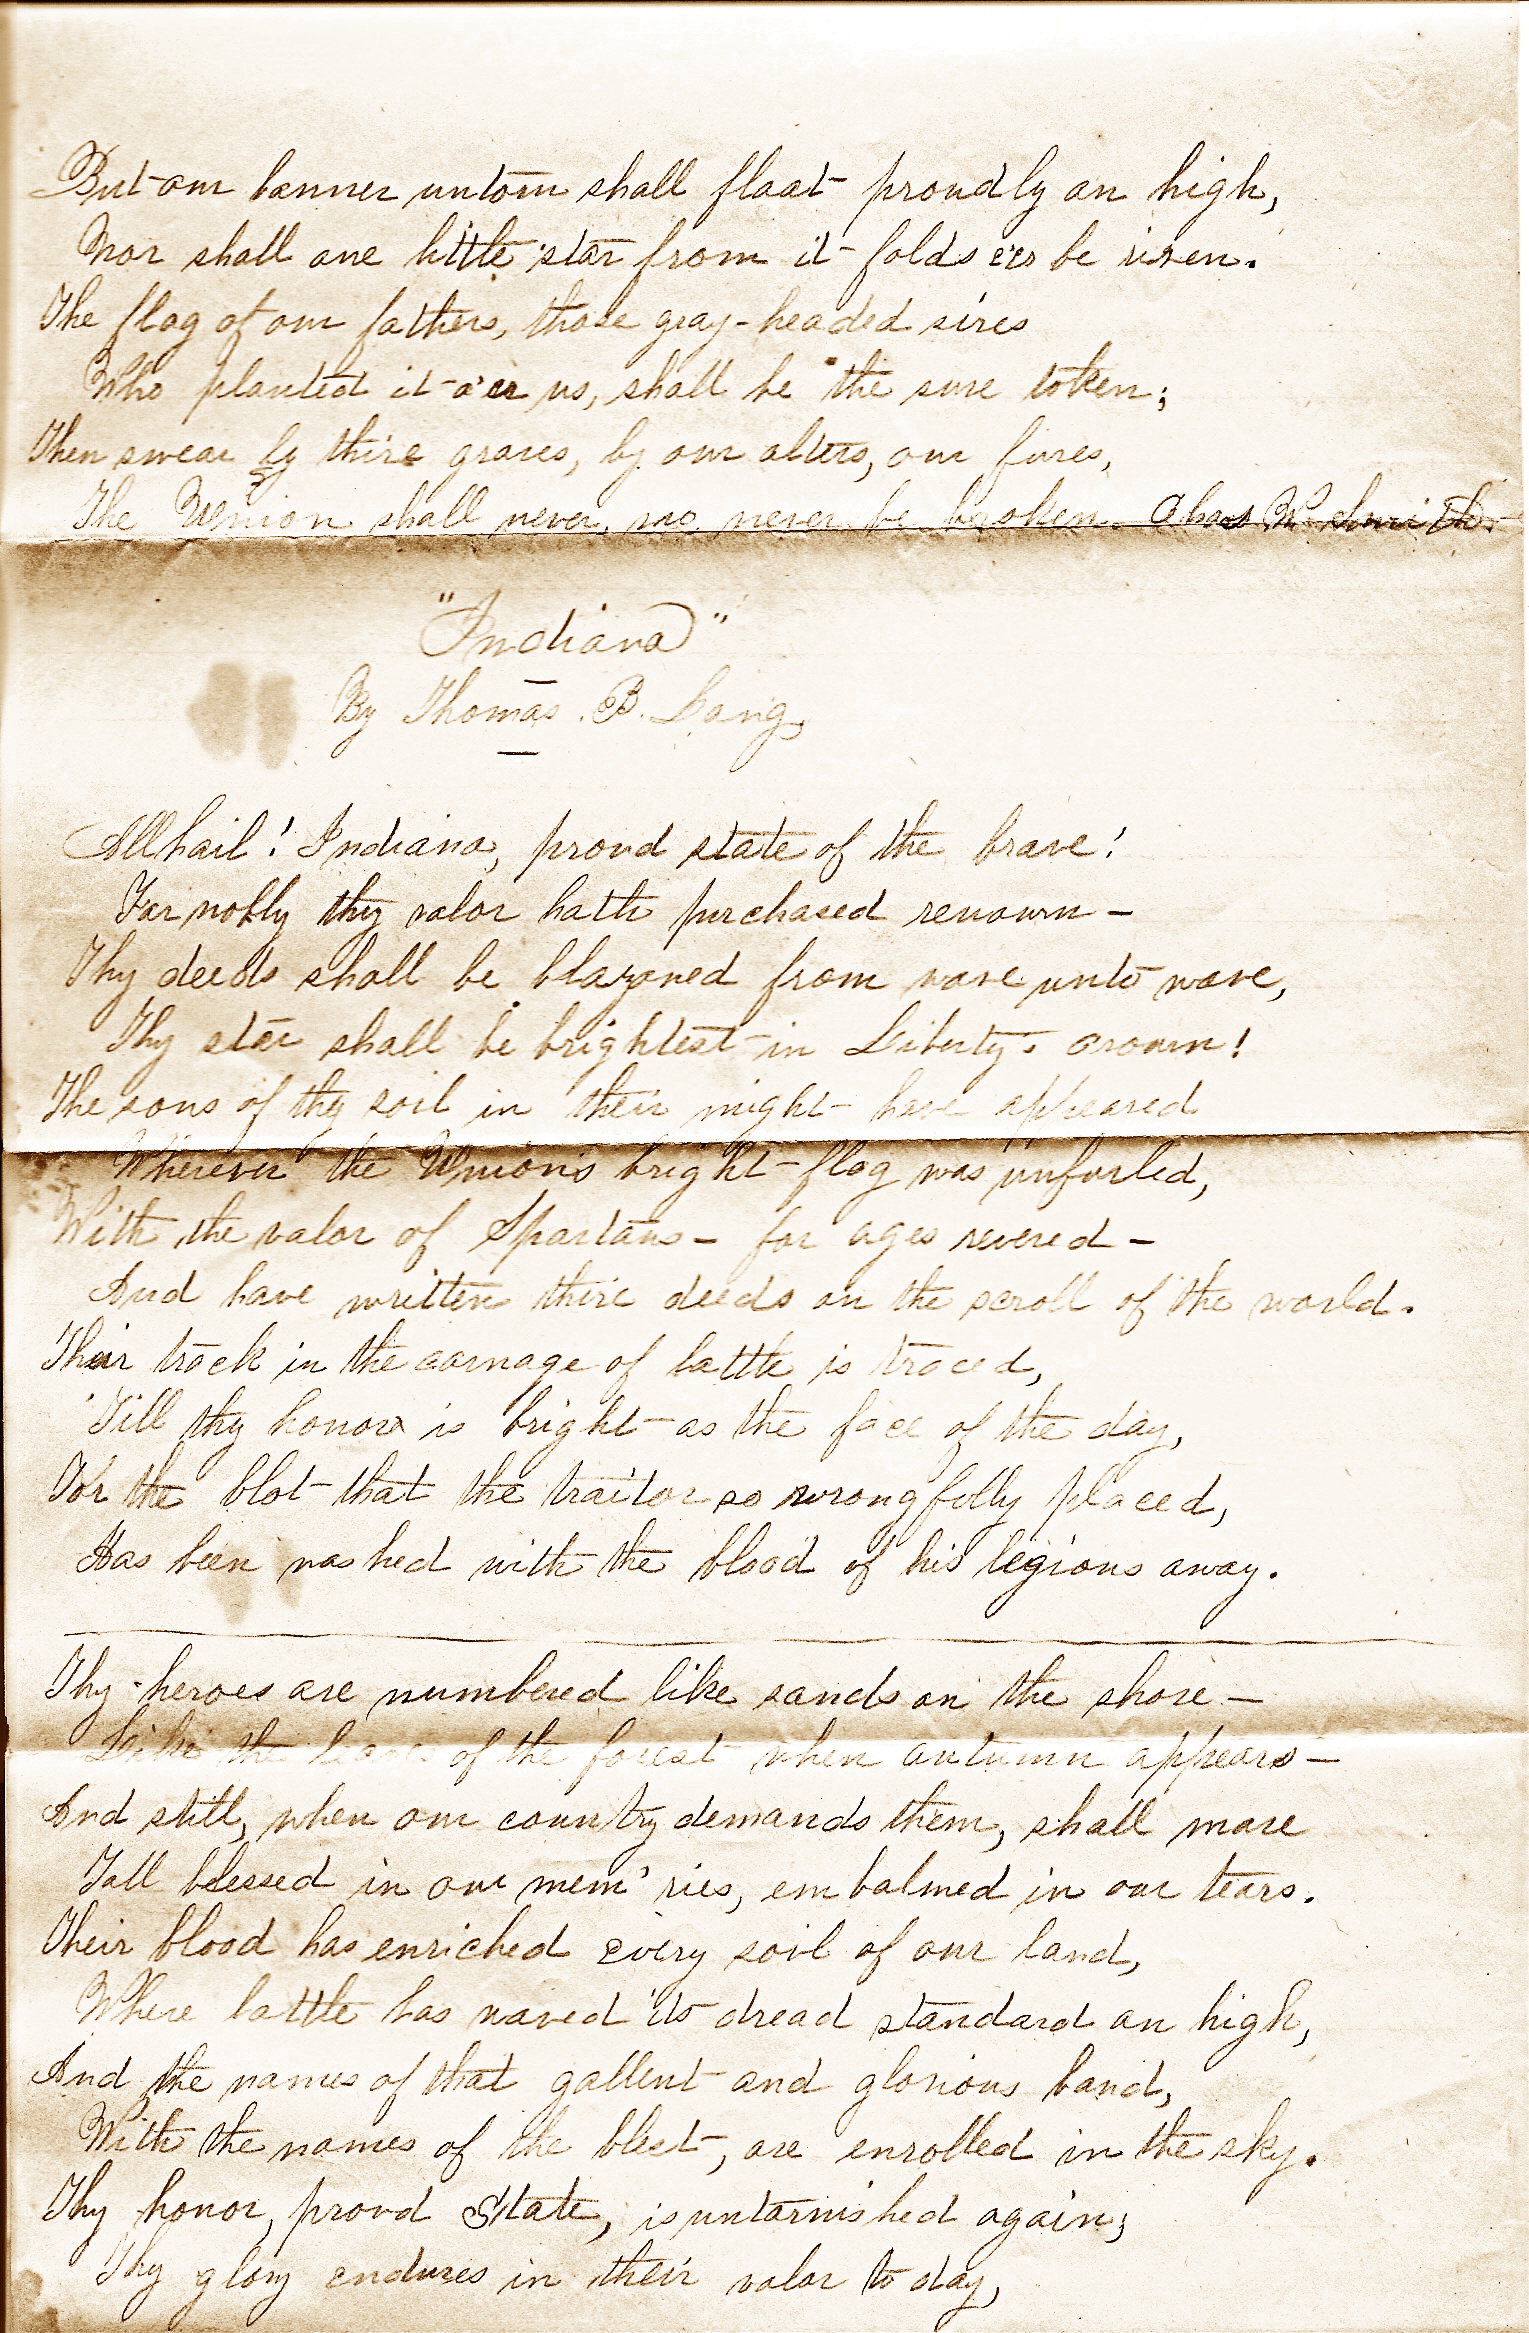 But our banner untorn shall float proudly on high,
Nor shall one little star from it folds e'er be risen.
The flag of our fathers, those gray-headed sires
Who planted it o'er us, shall be the sure token;
Then swear by thire graves, by our alters, our fires,
The Union shall never, no never be broken. Chas W. Smith.
"Indiana"
By Thomas. B. Lang
All hail! Indiana, proud state of the brave!
For nobly thy valor hath purchased renown -
Thy deeds shall be blazoned from wave unto wave,
Thy star shall be brightest in Liberty's crown!
The sons of thy soil in their might have appeared
Wherever the Union's bright flag was unfurled,
With the valor of Spartans - for ages revered -
And have written thire deeds on the scroll of the world.
Their track in the carnage of battle is traced,
'Till thy honor is bright as the face of the day,
For the blot that the traitor so wrongfully placed,
Has been washed with the blood of his legions away.
Thy heroes are numbered like sands on the shore -
Like the leave of the forest when autumn appears -
And still, when our country demands them, shall more
Fall blessed in our mem'ries, embalmed in our tears.
Their blood has enriched every soil of our land,
Where battle has waved its dread standard on high,
And the names of that gallent and glorious band,
With the names of the blest, are enrolled in the sky.
Thy honor, proud State, is untarnished again;
Thy glory endures in their valor to day,